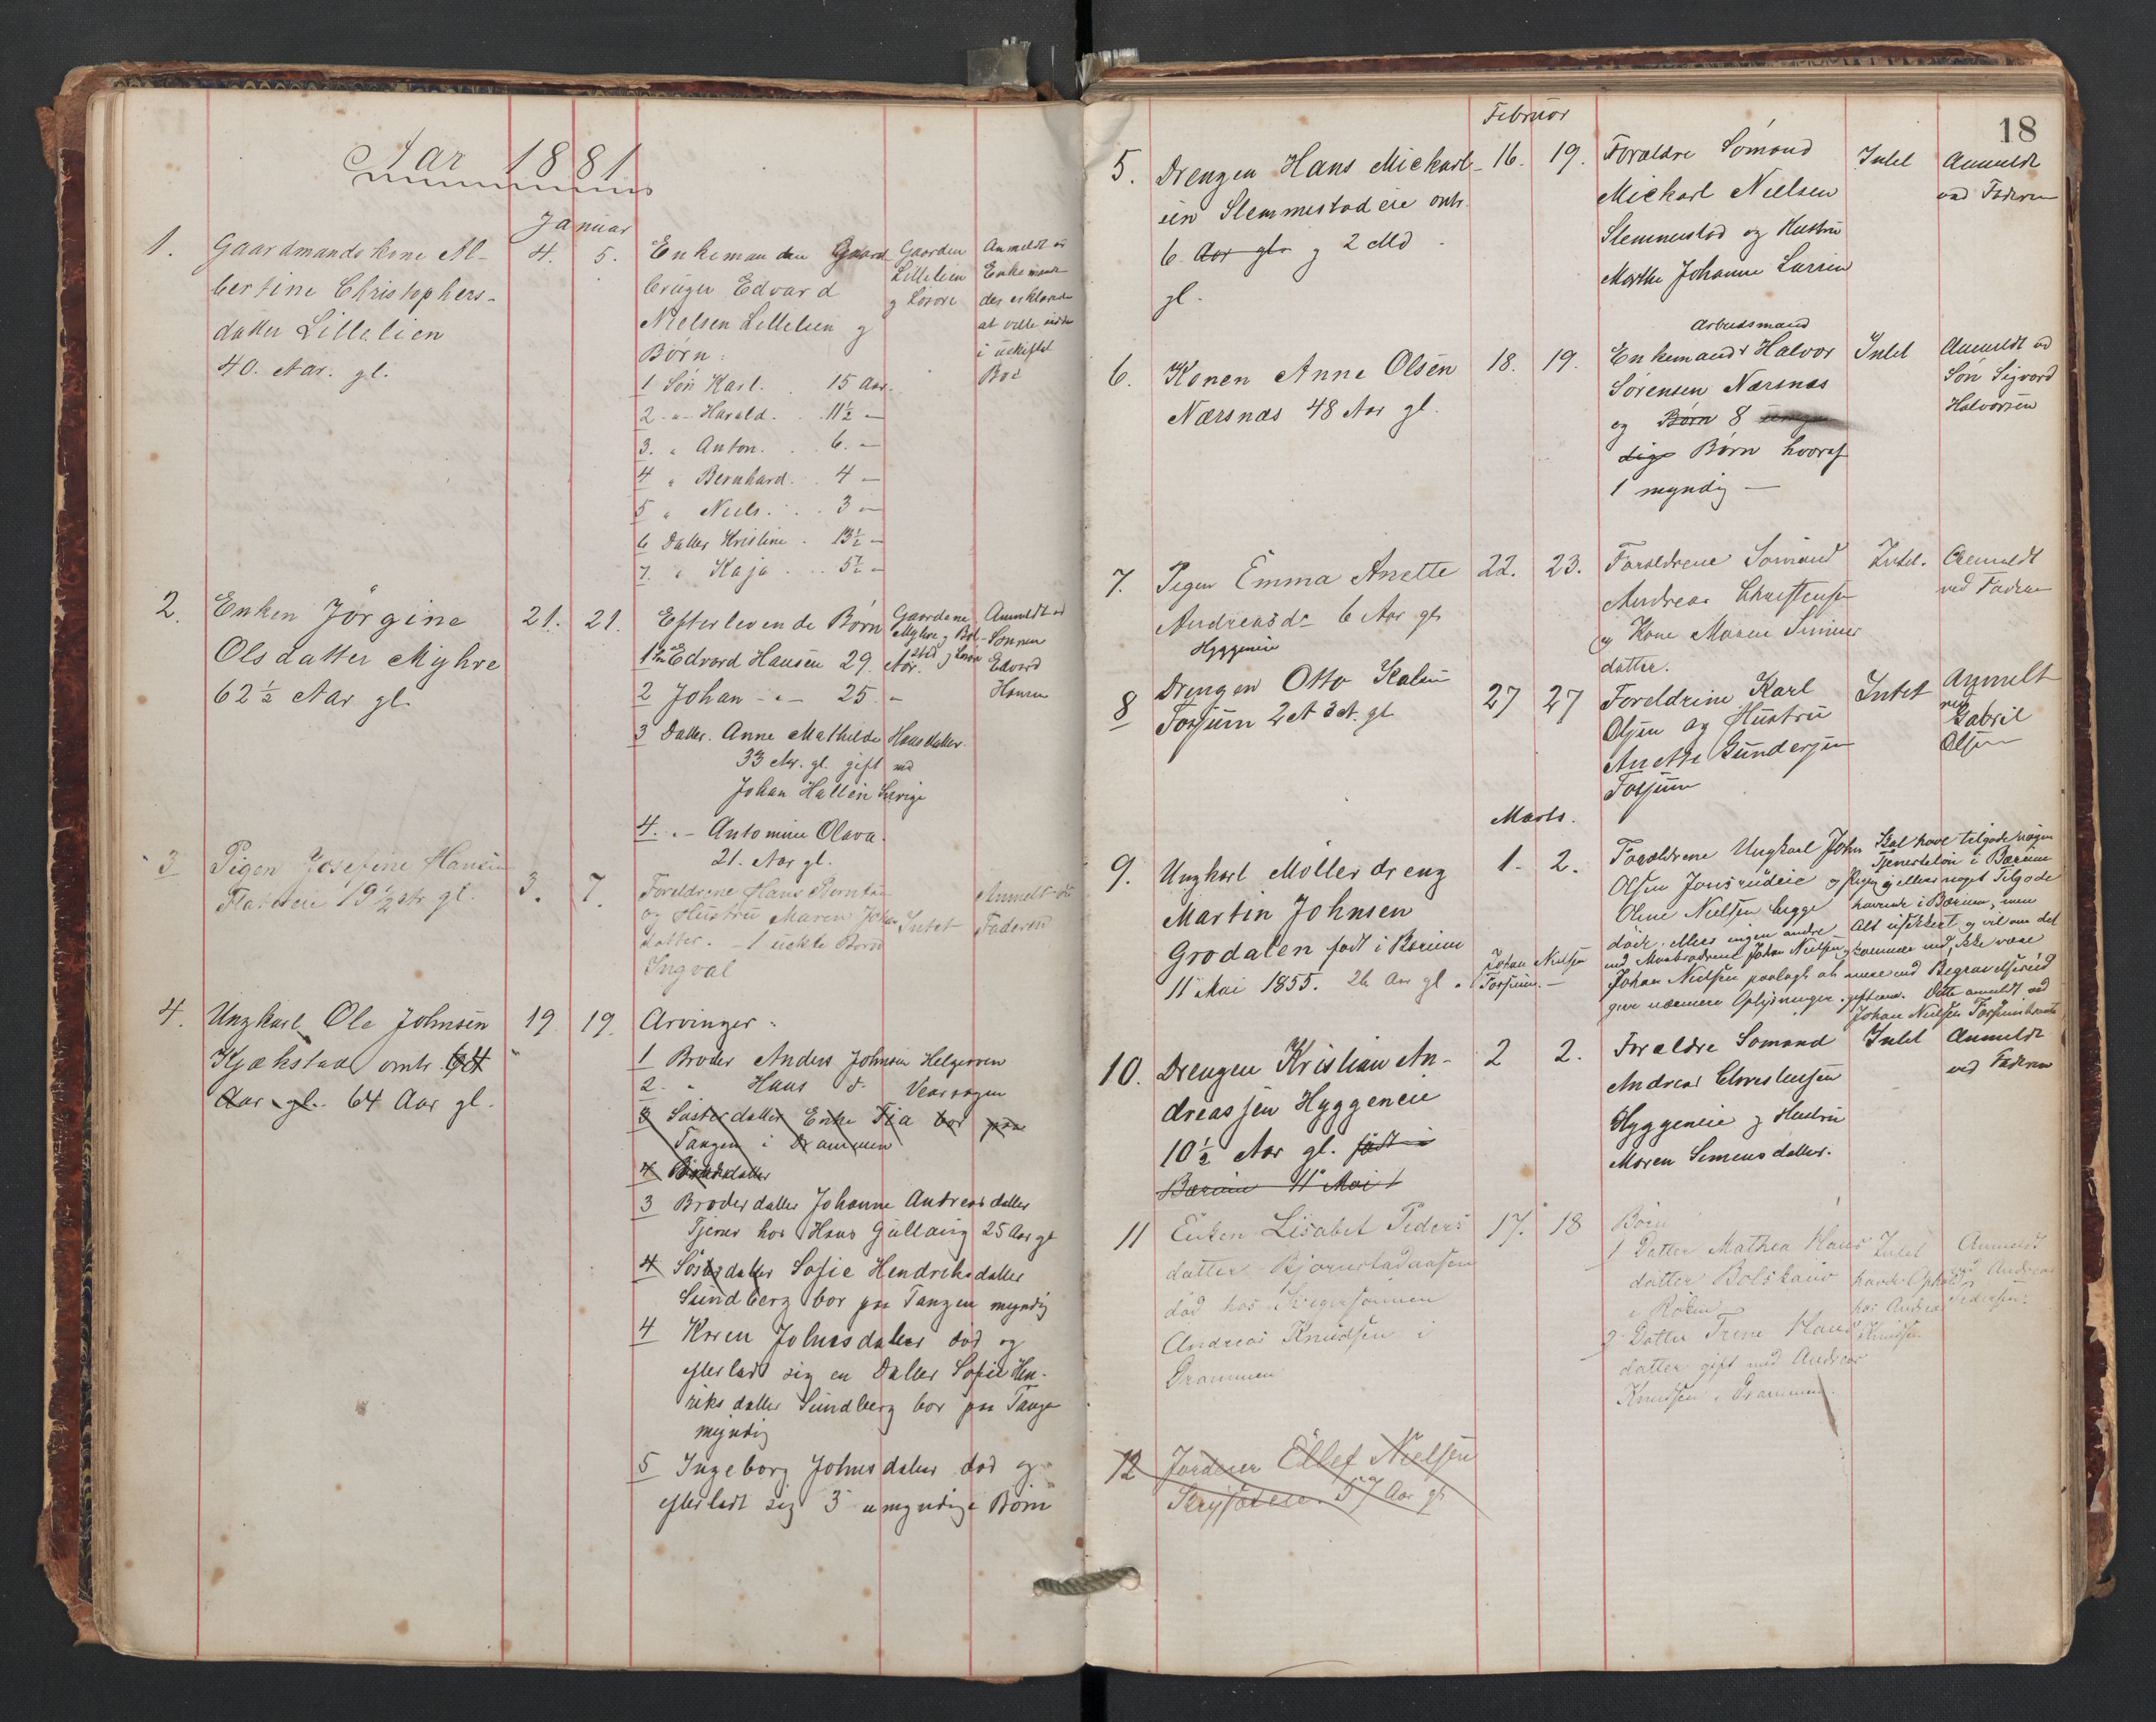 Aar 1881
Januar
1. Gaardmandskone Al-
bertine Christophers-
datter Lillelien
40. Aar. gl.
4. 5.
Enkemanden Gaard
bruger Edvard
Nielsen Lillelien og
Børn:
1 Søn Karl. 15 Aar.
2 -"- Harald. 11½ -
3. " Anton. 6. -
4 " Bernhard. 4 -
5 " Niels. 3 -
6 Datter Kristine. 13½ -
7. " Kaja 5½ -
Gaarden
Lillelien
og Løsøre
Anmeldt af
Enkemanden
der erklærede
at ville sidde
i uskiftet
Bo
2. Enken Jørgine
Olsdatter Myhre
62½ Aar gl.
21. 21.
Efterlevende Børn
1 Søn Edvard Hansen 29. Aar.
2 Johan -"- 25. -
3 Datter. Anne Mathilde Hansdatter.
33 Ar. gl. gift med
Johan Hallén Sverige
4. -"- Antomine Olava.
21. Aar gl.
Gaardene
Myhre og Bol-
stad og Løsøre
Anmeldt af
Sønnen
Edvard
Hansen
3 Pigen Josefine Hansen
19½ Ar gl.
3. 7.
Foreldrene Hans
og Hustru Maren Johns
datter. - 1 uekte Børn
Ingval
Intet
Anmelt af
Faderen
4. Ungkarl Ole Johnsen
Kjækstad omtr. 64
Aar gl. 64 Aar gl.
19 19.
Arvinger:
1 Broder Anders Johnsen Helgerven
2. " Hans d.
3 Søsterdatter Enke Fia bor paa
Tangen i Drammen
4 Broderdatter
3 Broderdatter Johanne Andreasdatter
Tjener hos Hans Gullaug 25 Aar gl
4 Søsterdatter Sofie Hendriksdatter
Sundberg bor paa Tangen myndig
4 Karen Johnsdatter død og
efterladt sig en Datter Sofie Hen-
riksdatter Sundberg bor paa Tangen
myndig
5 Ingeborg Johnsdatter død og
efterladt sig 3 umyndige Børn
18
Februar
5. Drengen Hans Mickael-
sen Slemmestadeie omtr.
6. Aar gl. og 2 Md
gl.
16. 19.
Forældre Sømand
Mickael Nielsen
Slemmestad og Hustru
Marthe Johanne Larsen
Intet
Anmeldt
ved Faderen
6. Konen Anne Olsen
Nærsnæs 48 Aar gl.
18. 19.
Arbeidsmand
Enkemand Halvor
Sørensen Nærsnæs
og Børn 8
dige Børn hvoraf
1 myndig —
Intet
Anmeldt ved
Søn Sigvard
Halvorsen
7. Pigen Emma Anette
Andreasdr 6 Aar gl.
Hyggeneie
22. 23.
Foreldrene Sømand
Andreas Christensen
og Kone Maren Simens
datter.
Intet.
Anmeldt
ved Faderen
8 Drengen Otto Kalsen
Torsjum 2 A 3 M. gl
27 27
Foreldrene Karl
Olsen og Hustru
Anette Gundersen
Torsjum
Intet
Anmelt
ved
Gabril
Olsen
Marts.
9. Ungkarl Møllerdreng
Martin Johnsen
Grodalen født i Bærum
11 Mai 1855. 26 Aar gl.
1. 2.
Johan Nielsen
Torsjum. —
Forældrene Ungkarl John
Olsen Jonsrudeie og Pigen
Oline Nielsen begge
døde. Efter ingen andre
end Morbroderen Johan Nielsen
Johan Nielsen paalagt at
give nærmere Oplysninger.
Skal have tilgode nogen
Tjenesteløn i Bærum
ellers noget Tilgode
havende i Bærum, men
Alt usikkert og vil om det
kommer ind, ikke være
mere end Begravelsesud
gifterne. Dette anmeldt ved
Johan Nielsen
10. Drengen Kristian An-
dreassen Hyggeneie
10½ Aar gl. født i
Bærum 11 Mai 1
2 2.
Forældre Sømand
Andreas Christensen
Hyggeneie og Hustru
Maren Simensdatter.
Intet
Anmeldt
ved Faderen
11 Enken Lisabet Peders
datter Bjørnstad
død hos Svigersønnen
Andreas Knudsen i
Drammen
17. 18
Børn
1 Datter Mathea Hans
datter Bolstad
i Røken
2 Datter Trene Hans
datter gift med Andreas
Knudsen i Drammen.
Intet
havde Ophold
hos Andreas
Knudsen
Anmeldt
ved Andreas
Pedersen.
12 Jordeier Ellef Nielsen
57 Aar gl